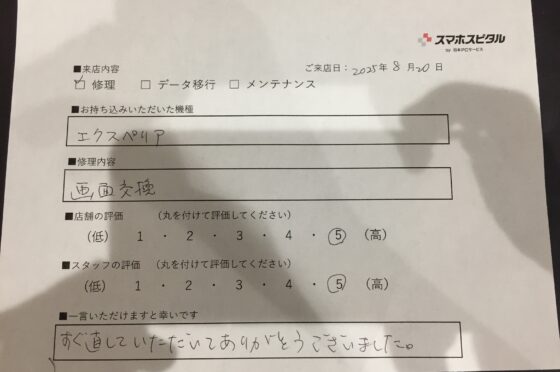 スマホスピタル
by 日本PCサービス
■来店内容
ご来店日:2025年 8月20日
☑ 修理 □ データ移行 □ メンテナンス
■お持ち込みいただいた機種
エクスペリア
■修理内容
画面交換
■店舗の評価 (丸を付けて評価してください)
(低) 1 ・ 2 ・ 3 ・ 4 ・ 5 (高)
■スタッフの評価 (丸を付けて評価してください)
(低) 1 ・ 2 ・ 3 ・ 4 ・ 5 (高)
■一言いただけますと幸いです
すぐ直していただいてありがとうございました。